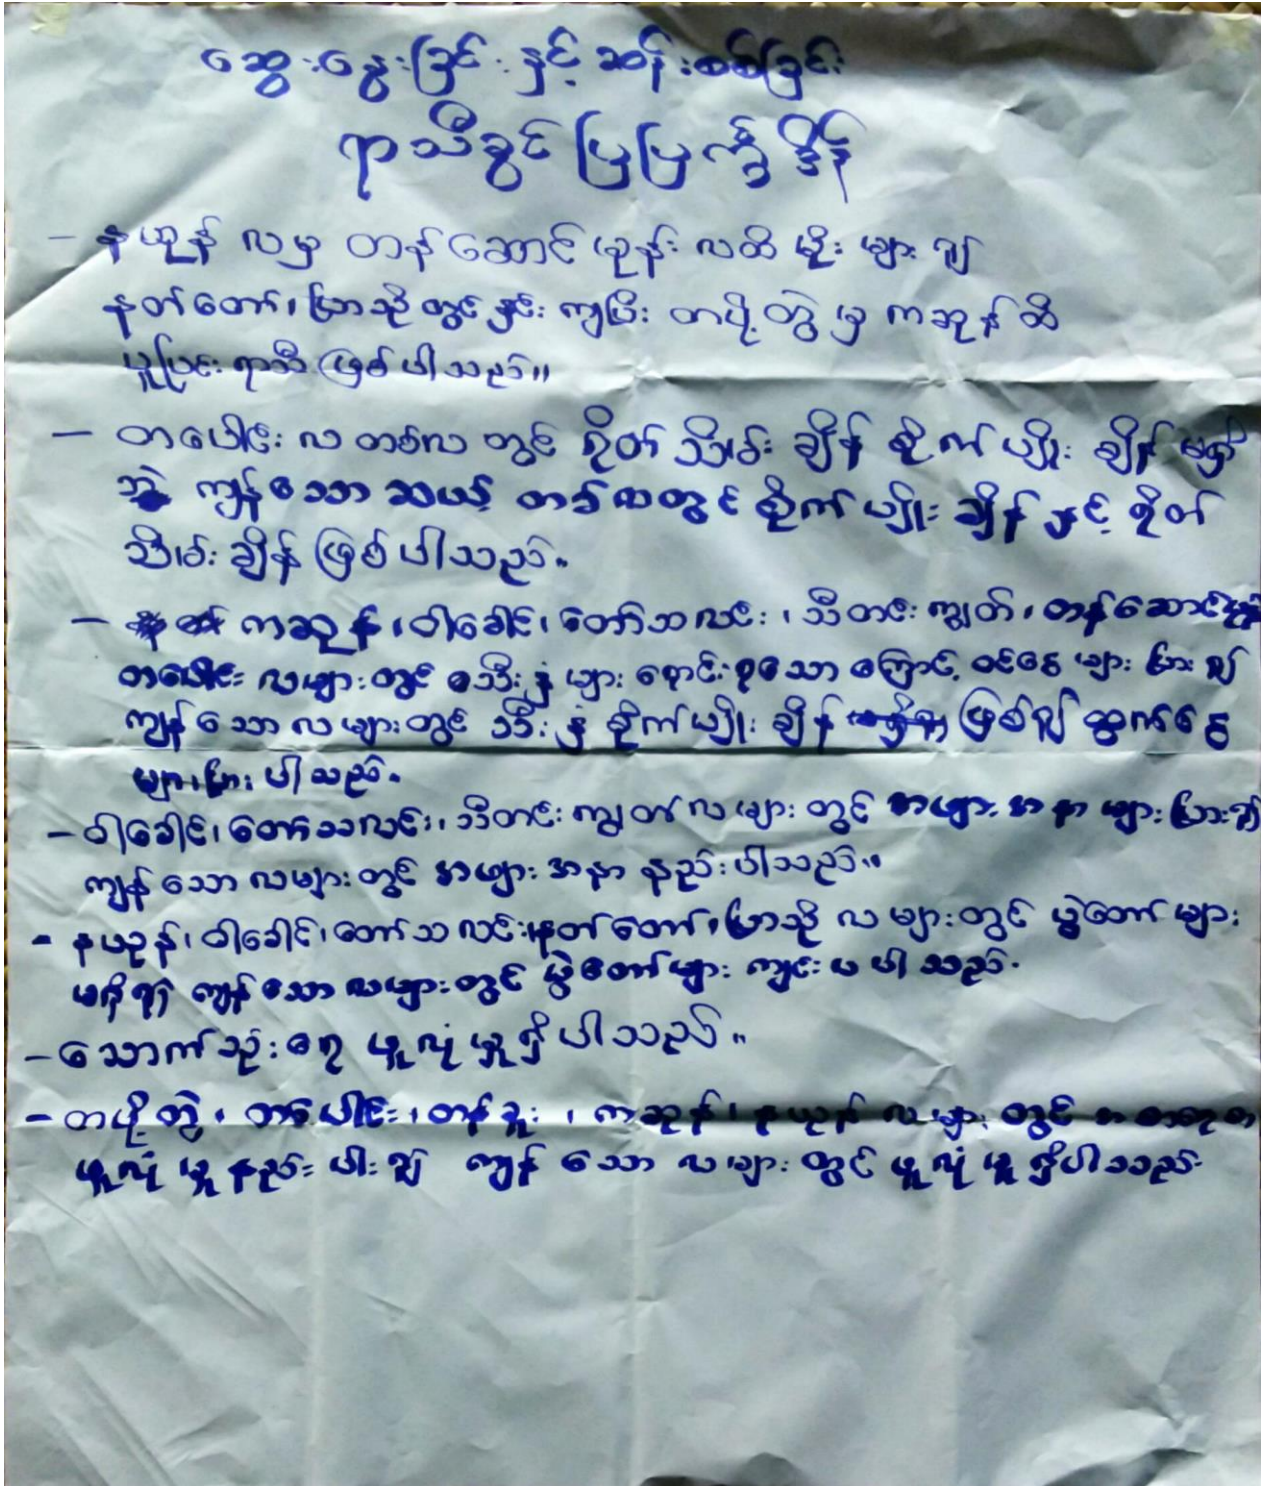 ဆွေးနွေးခြင်းနှင့် ဆန်းစစ်ခြင်း
ရာသီခွင်ပြပြက္ခဒိန်
- နယုန် လမှ တန်ဆောင်မုန်း လထိ မိုး များ ၍
နတ်တော်၊ ပြာသိုတွင် နှင်း ကျပြီး တပို့တွဲ မှ ကဆုန် ထိ
ပူပြင်း ရာသီ ဖြစ်ပါသည်။
- တပေါင်း လ တစ်လ တွင် ရိတ် သိမ်း ချိန် စိုက် ပျိုး ချိန် မရှိ
ဘဲ ကျန်သော ဆယ့် တစ်လတွင် စိုက် ပျိုး ချိန် နှင့် ရိတ်
သိမ်း ချိန် ဖြစ်ပါသည်။
- ကဆုန်၊ ဝါခေါင်၊ တော်သလင်း၊ သီတင်း ကျွတ်၊ တန်ဆောင်မုန်း
တပေါင်း လများတွင် သီးနှံ များ ရောင်းရသော ကြောင့် ဝင်ငွေ များ ပြား ၍
ကျန် သော လ များတွင် သီးနှံ စိုက် ပျိုး ချိန် ဖြစ်၍ ထွက်ငွေ
များပြား ပါသည်။
- ဝါခေါင်၊ တော်သလင်း၊ သီတင်း ကျွတ် လ များ တွင် အဖျား အနာ များ ပြား၍
ကျန် သော လများ တွင် အဖျား အနာ နည်းပါသည်။
- နယုန်၊ ဝါခေါင်၊ တော်သလင်း၊ နတ်တော်၊ ပြာသို လ များတွင် ပွဲတော် များ
မရှိ၍ ကျန် သော လများတွင် ပွဲတော်များ ကျင်းပ ပါ သည်။
- သောက်သုံး ရေ ဖူလုံ မှု ရှိ ပါ သည်။
- တပို့တွဲ၊ တပေါင်း၊ တန်ခူး၊ ကဆုန်၊ နယုန် လ များ တွင် အစာရေစာ
ဖူလုံ မှု နည်း ပါး ၍ ကျန် သော လ များ တွင် ဖူလုံ မှု ရှိပါသည်